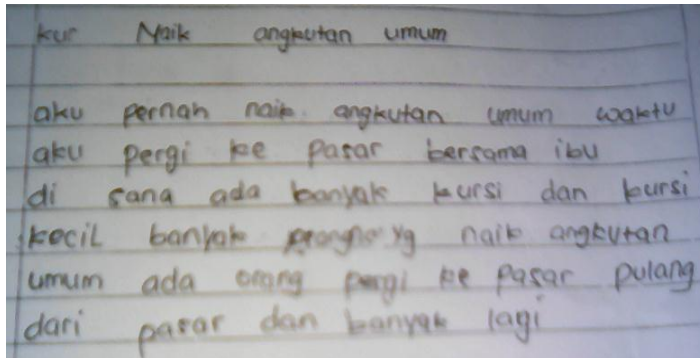 kur Naik angkutan umum
aku pernah naik angkutan umum waktu
aku pergi ke pasar bersama ibu
di sana ada banyak kursi dan kursi
kecil banyak yg naik angkutan
umum ada orang pergi ke pasar pulang
dari pasar dan banyak lagi